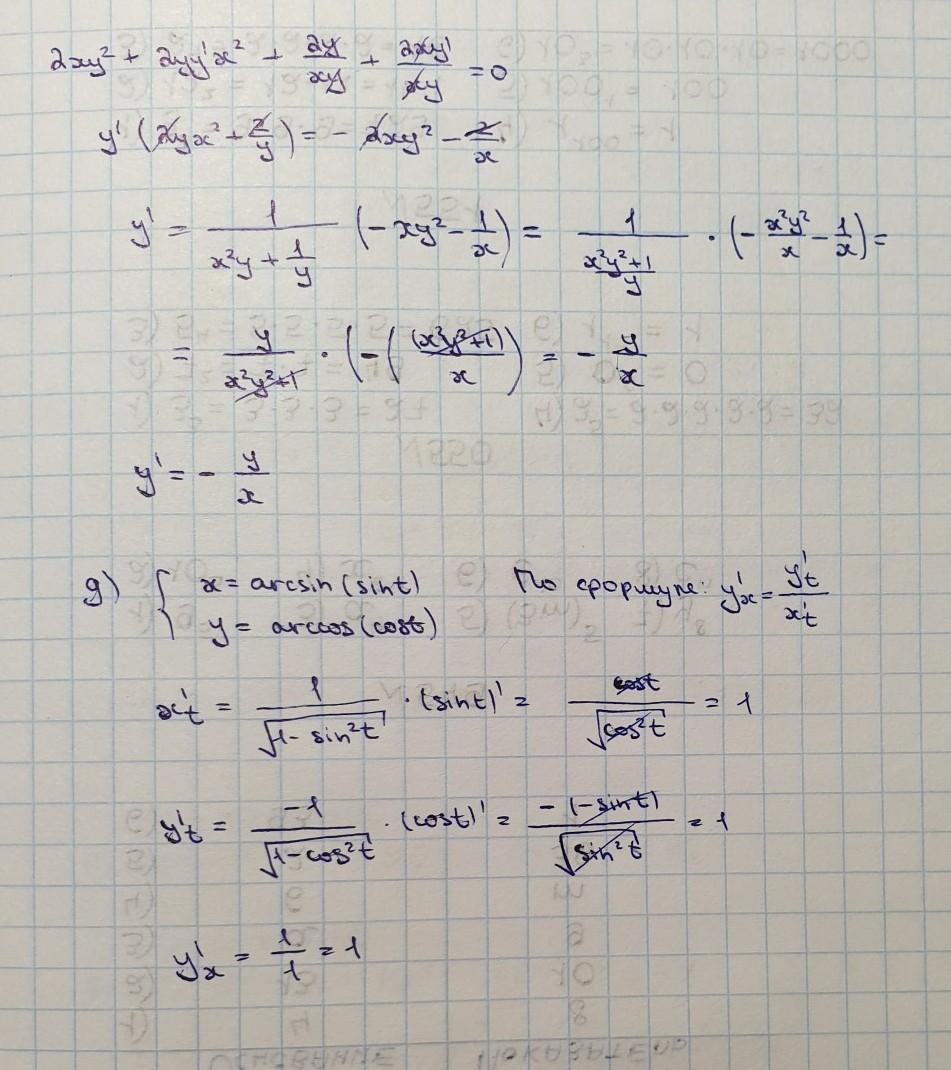 2xy² + 2yy'x² + 2y/xy + 2xy'/xy = 0
y' (2yx² + 2/y) = - 2xy² - 2/x
y' = 1/(x²y + 1/y) (-xy² - 1/x) = 1/((x²y²+1)/y) · (- x²y²/x - 1/x) =
= y/(x²y²+1) · (-((x²y²+1)/x)) = - y/x
y' = - y/x
g) { x = arcsin (sint) По формуле: y'x = y't/x't
y = arccos (cost)
x't = 1/√(1 - sin²t) · (sint)' = cost/√(cos²t) = 1
y't = -1/√(1-cos²t) · (cost)' = - (-sint)/√(sin²t) = 1
y'x = 1/1 = 1